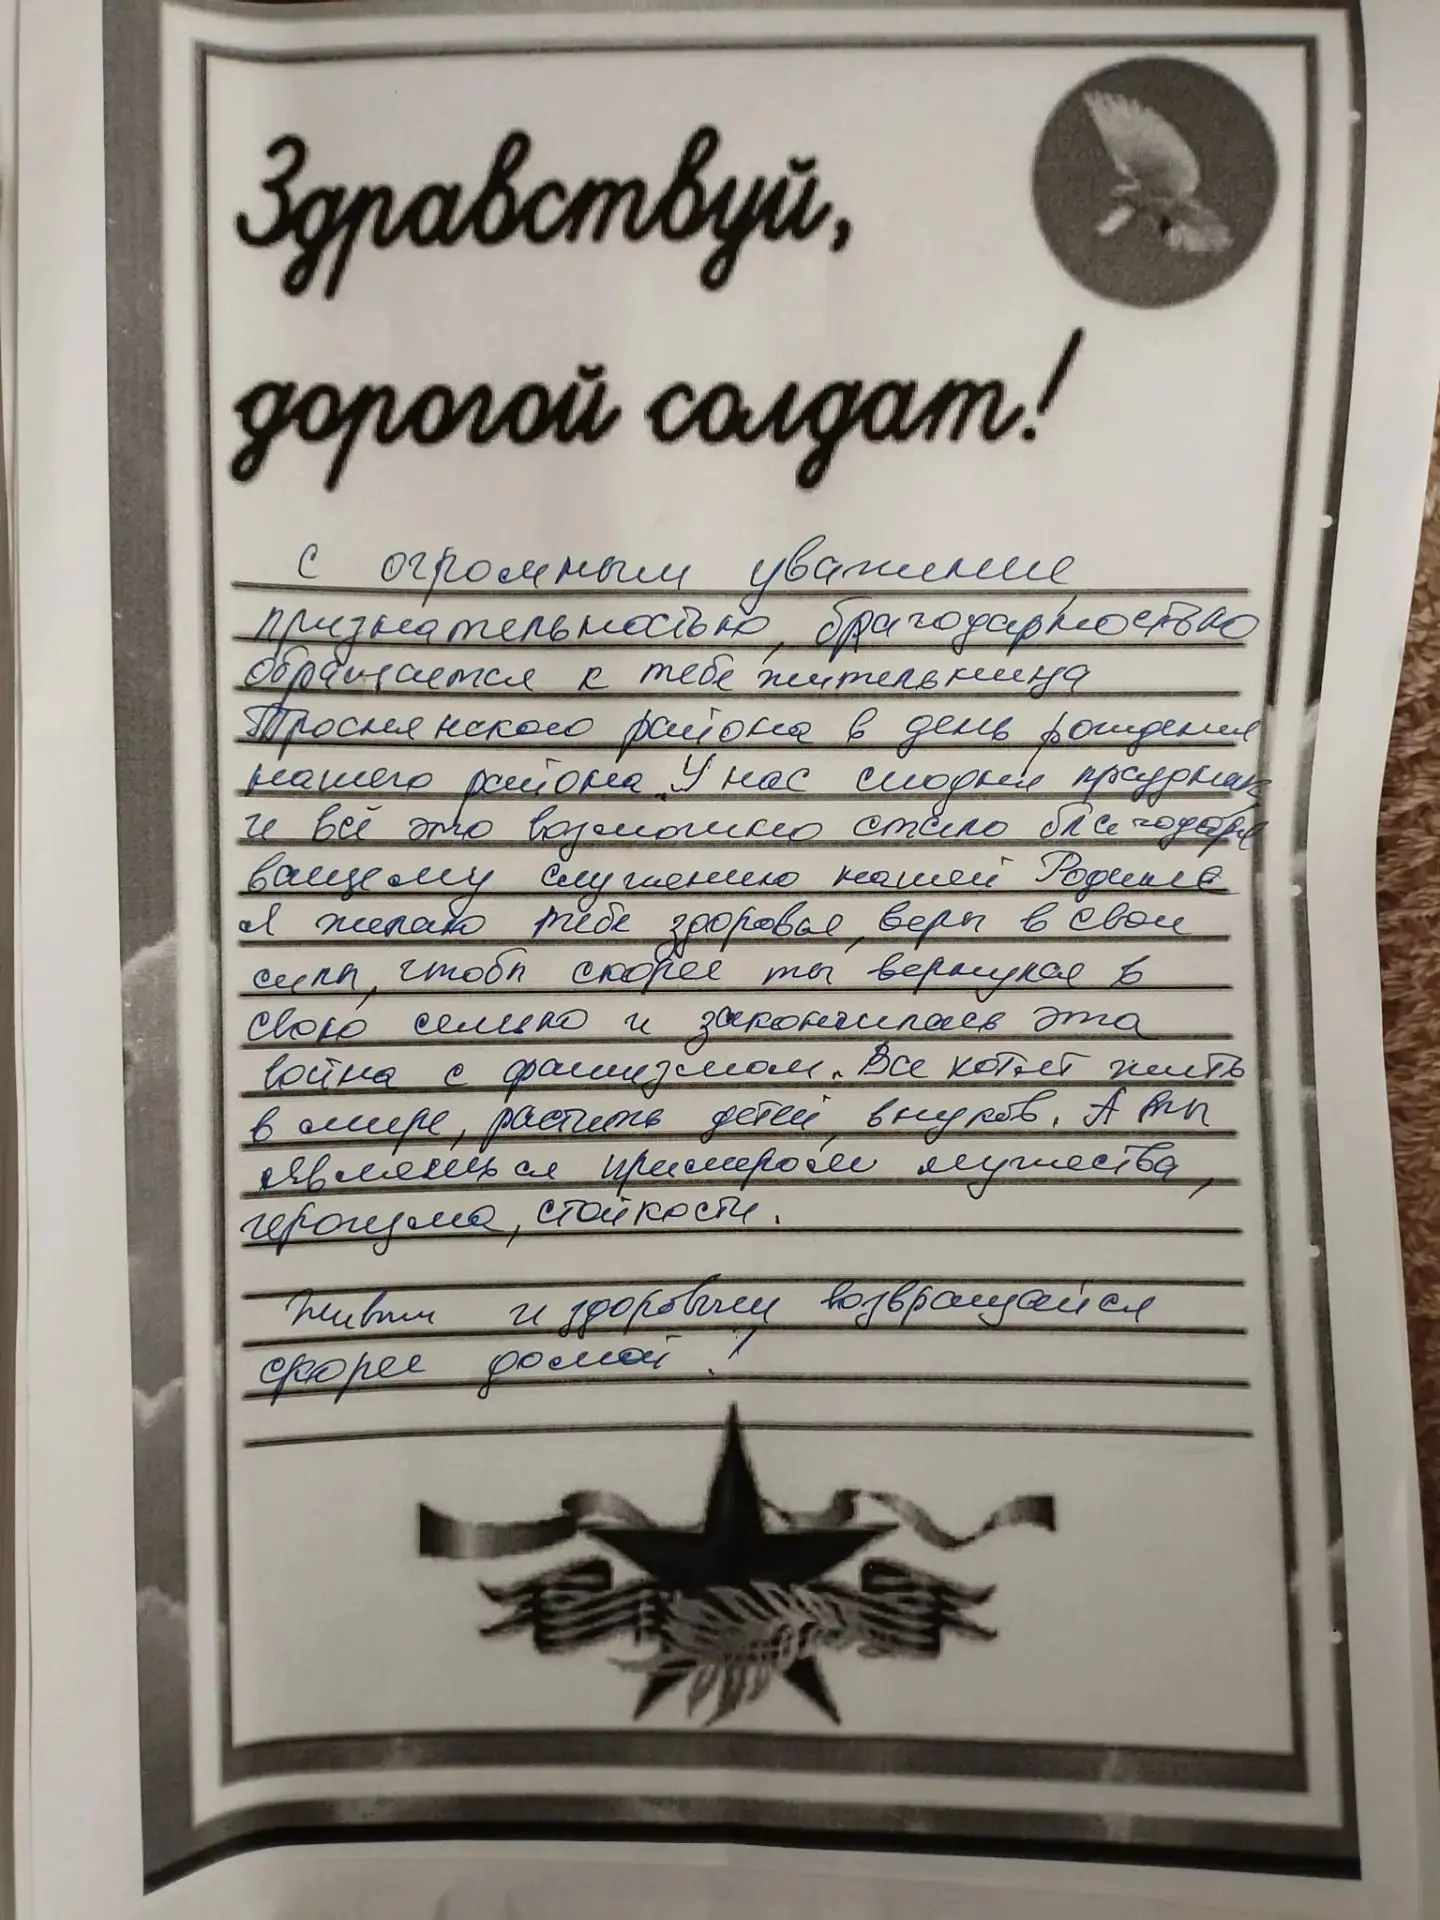 Здравствуй,
дорогой солдат!
С огромным уважение
признательностью, благодарностью
обращается к тебе жительница
Троснянского района в день рождения
нашего района. У нас сегодня праздник
и всё это возможно стало благодаря
вашему служению нашей Родине
Я желаю тебе здоровья, веры в свои
силы, чтобы скорее ты вернулся в
свою семью и закончилась эта
война с фашизмом. Все хотят жить
в мире, растить детей, внуков. А ты
являешься примером мужества,
героизма, стойкости.
Живым и здоровым возвращайся
скорее домой!